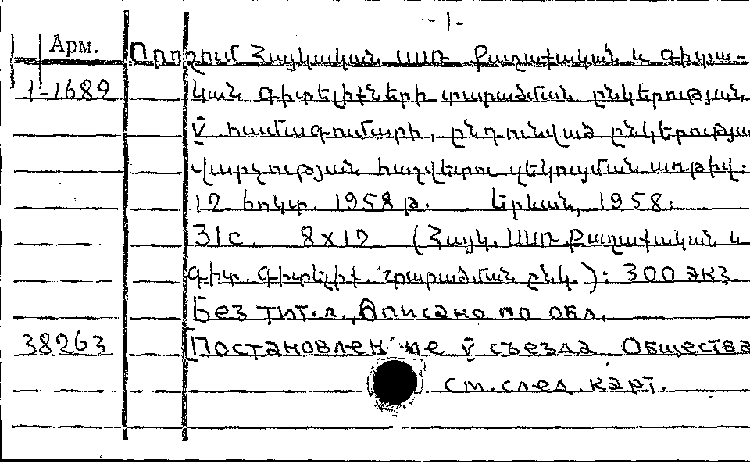 - 1 -
Арм. Որոշում Հայկական ՍՍՌ Քաղաքական և Գիտա-
1-1682 կան Գիտելիքների տարածման ընկերության
V համագումարի, ընդունված ընկերության
վարչության հաշվետու զեկուցման առթիվ.
12 հոկտ. 1958 թ. Երևան, 1958.
31с. 8x12 (Հայկ. ՍՍՌ Քաղաքական և
Գիտ. Գիտելիք. տարածման ընկ.): 300 экз
Без тит. л., Описано по обл.
38263 Постановление V съезда Общества
см. след. карт.